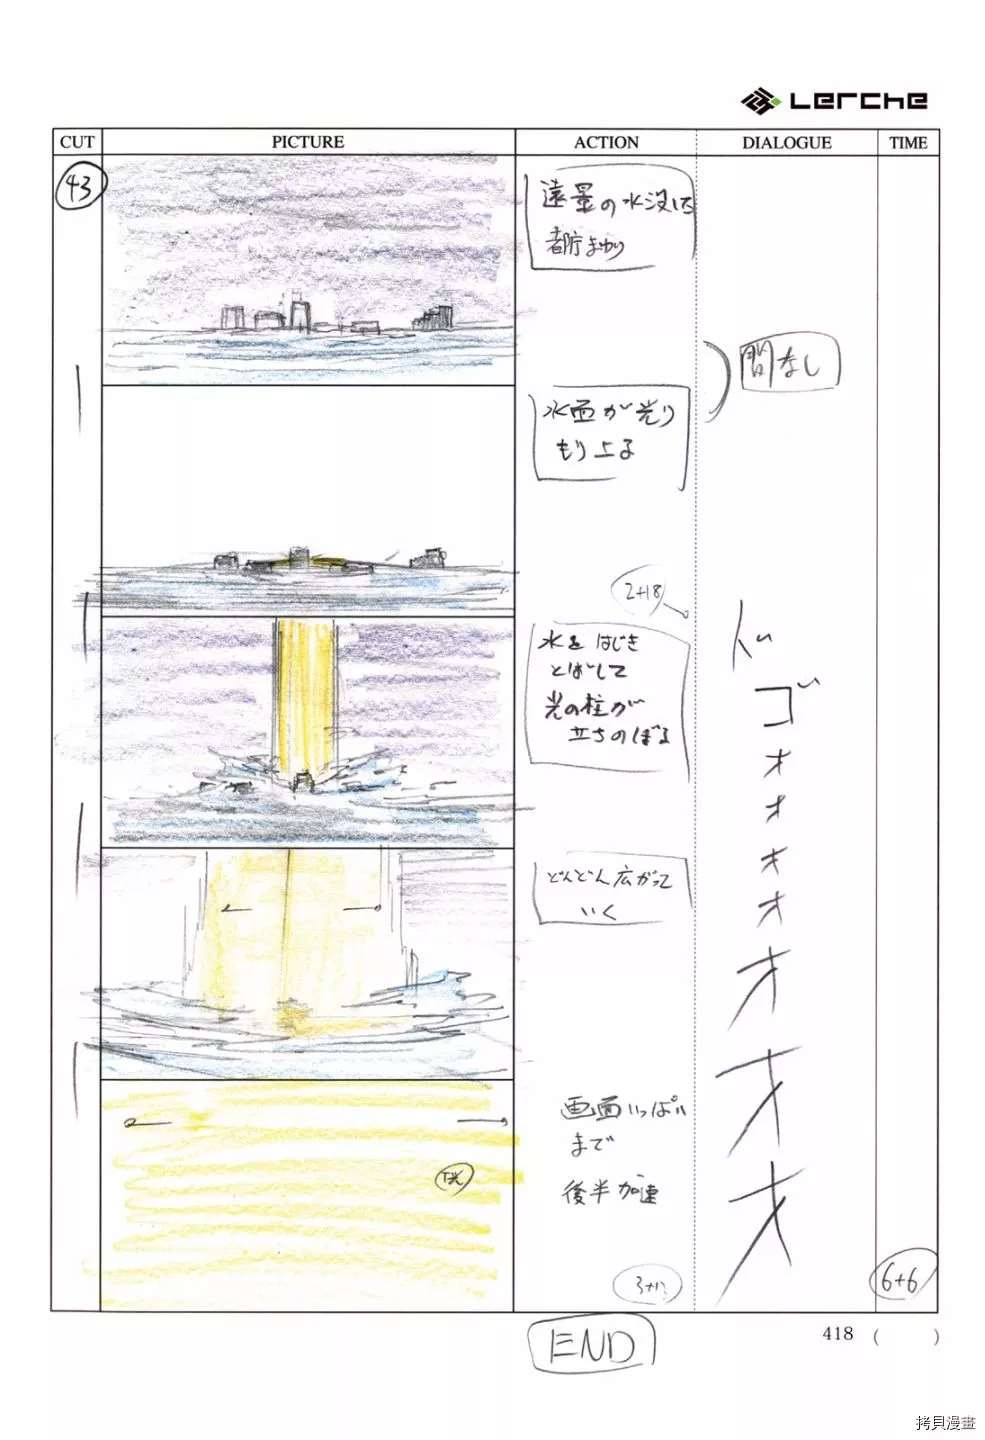 Lerche
CUT
PICTURE
ACTION
DIALOGUE
TIME
43
遠景の水没した
都庁まわり
間なし
水面が光り
もり上る
2+18
水をはじき
とばして
光の柱が
立ちのぼる
ド
ゴ
オ
オ
オ
オ
オ
オ
オ
どんどん広がって
いく
画面いっぱい
まで
後半加速
T光
6+6
END
418 ( )
拷貝漫畫